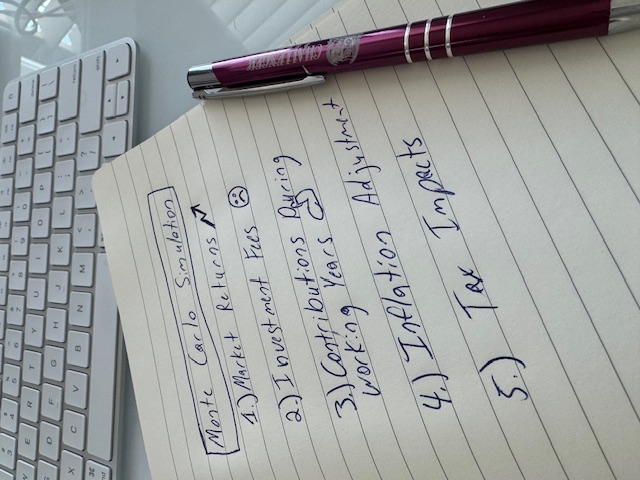 Monte Carlo Simulation
1.) Market Returns
2.) Investment Fees
3.) Contributions During
Working Years
4.) Inflation Adjustment
5.) Tax Impacts